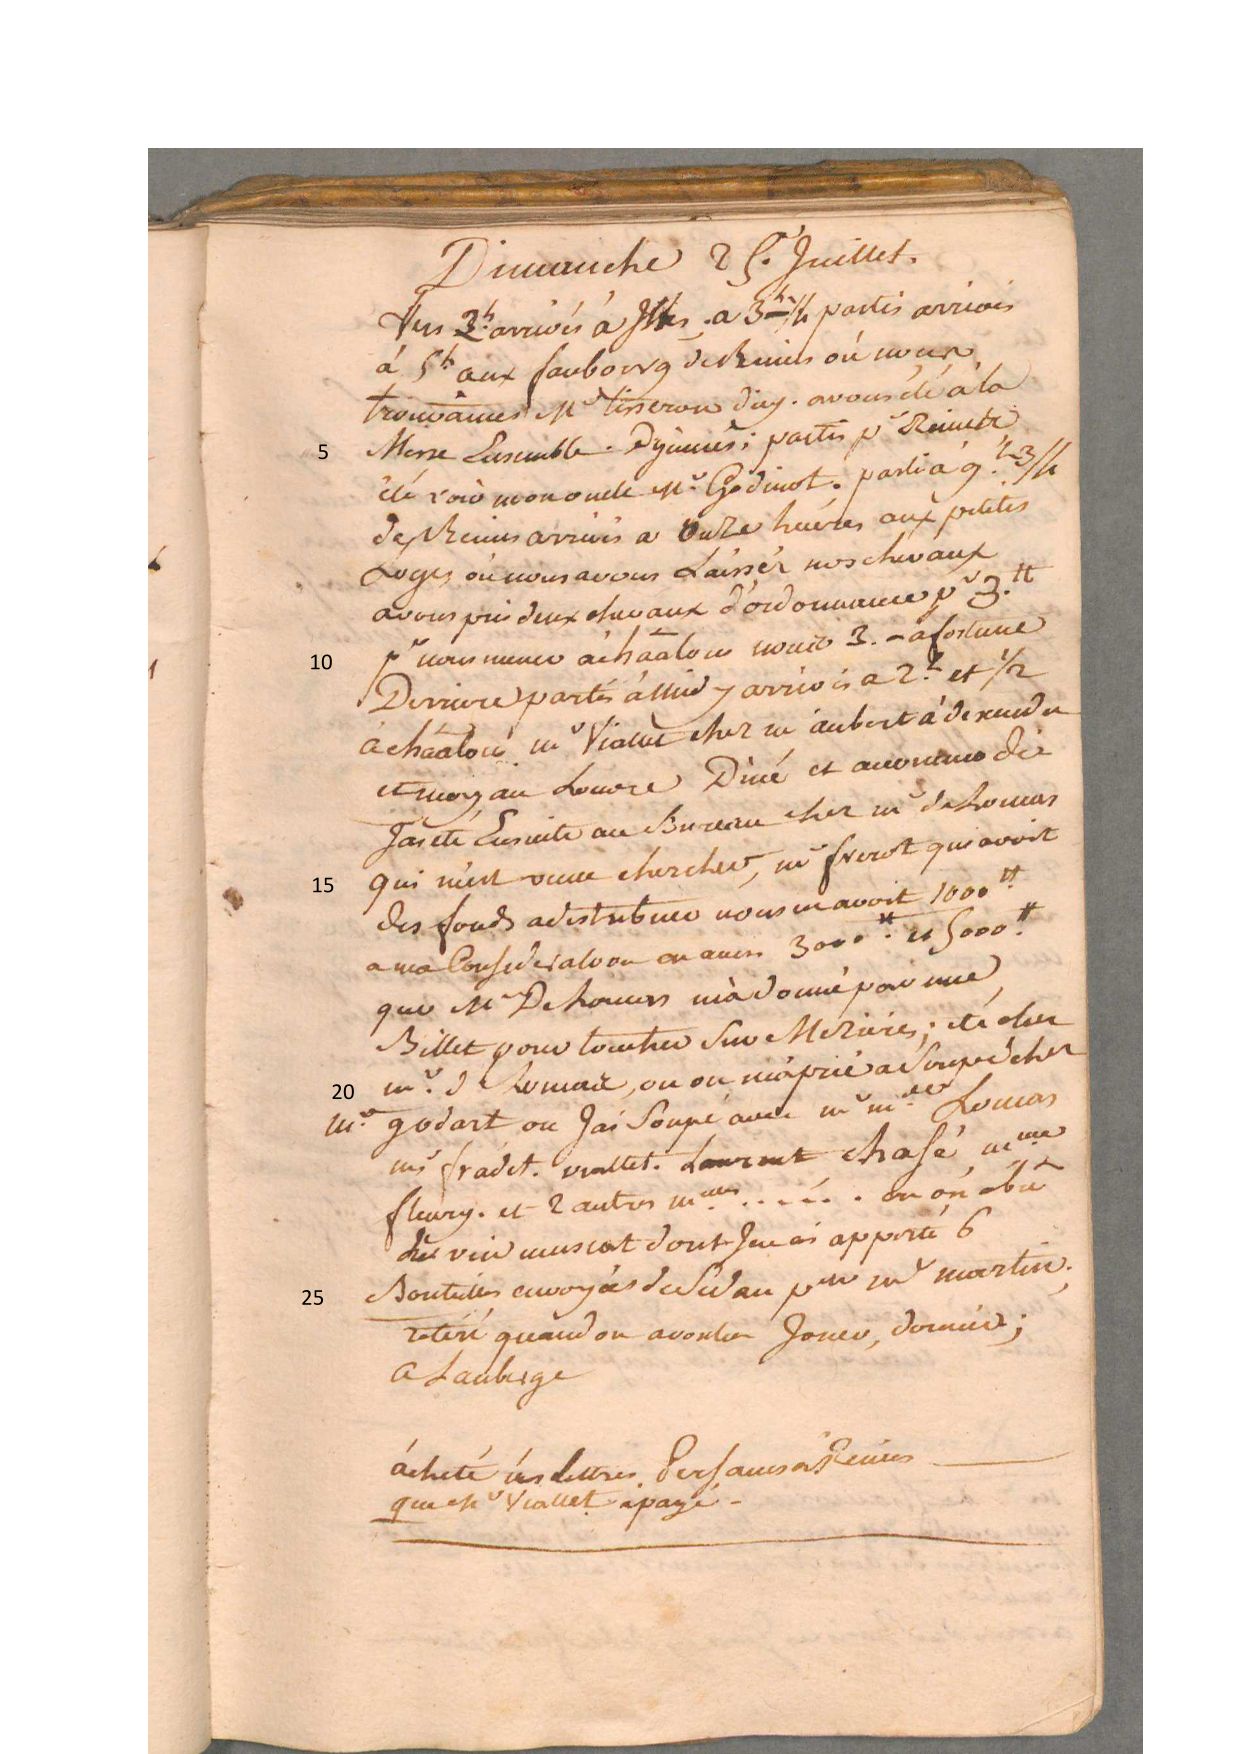 Dimanche 25. Juillet.
Vers 3h. arrivés à Isles. a 3h 1/4 partis arrivés
à 5h aux faubourg de Reims où nous
trouvâmes Mr tisseron avons été à la
5 Messe Ensemble. Dejeuner; partis pr Reims
été voir mon oncle Mr Godinot. parti à 9.h 3/4
de Reims arrivés a Onze heures aux petites
Loges où nous avons Laissér nos chevaux
avons pris deux chevaux d'ordonnance pr 3.tt
10 pr nous mener à chââlons 3. - à fortune
Derriere partis à Midy arrivés a 2.h et 1/2
à chââlons mr Viallet chez mr aubert à descendu
et moy au Louvre Diné et
Jai été Ensuite au Bureau chez mr de Lomas
15 qui m'est venu chercher, mr frerot qui avoit
des fonds a distribuer nous en avoit 1000tt
a ma Consideration en avons 3000tt. et 5000tt.
que Mr De Lomas m'a donné par une
Billet pour toucher Sur Mezieres; été chez
20 mr. de Lomas, ou on m'a prié a Soupé chez
mr godart ou Jai Soupé avec mr Lomas
mr fradet. viallet. Laurent chasé mme
fleury. et 2 autres mmes ..... ou on a bu
du vin muscat dont Jen ai apporté 6
25 Bouteilles envoyées de Sedan pour mr martin;
retiré quand on a voulu Jouer, dormir;
a Lauberge
acheté les Lettres Persanes à Reims
que Mr Viallet a payé -